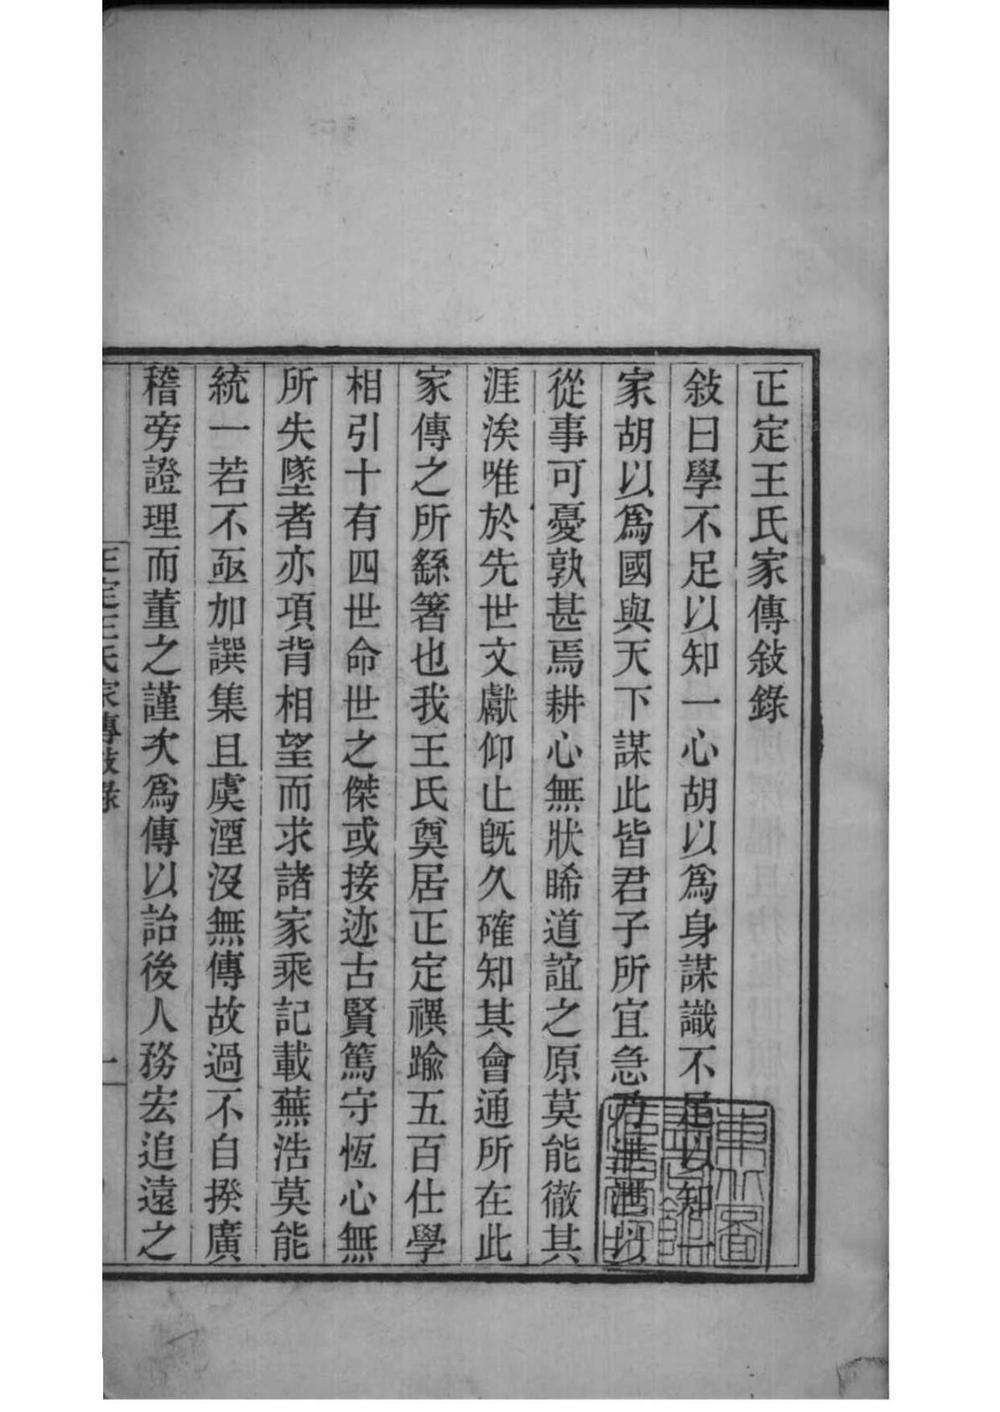 正定王氏家傳敍錄
敍曰學不足以知一心胡以爲身謀識不足以知一
家胡以爲國與天下謀此皆君子所宜急乃泄泄以
從事可憂孰甚焉耕心無狀晞道誼之原莫能徹其
涯涘唯於先世文獻仰止旣久確知其會通所在此
家傳之所繇箸也我王氏奠居正定禩踰五百仕學
相引十有四世命世之傑或接迹古賢篤守恆心無
所失墜者亦項背相望而求諸家乘記載蕪浩莫能
統一若不亟加譔集且虞湮沒無傳故過不自揆廣
稽旁證理而董之謹次爲傳以詒後人務宏追遠之
正定王氏家傳敍錄
一